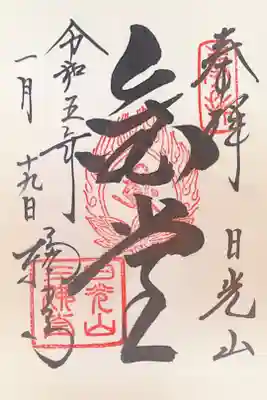 奉拝　日光山
金堂
日光山
三佛堂
令和五年
一月十九日　輪王寺